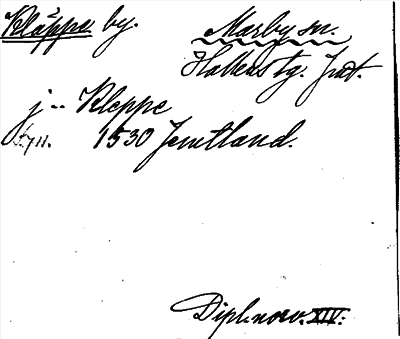 Kläppe by. Marby sn.
Hallens tg. Jmt.
j -- Kleppe
1530 Jemtland.
Dipl. norv. XIV: